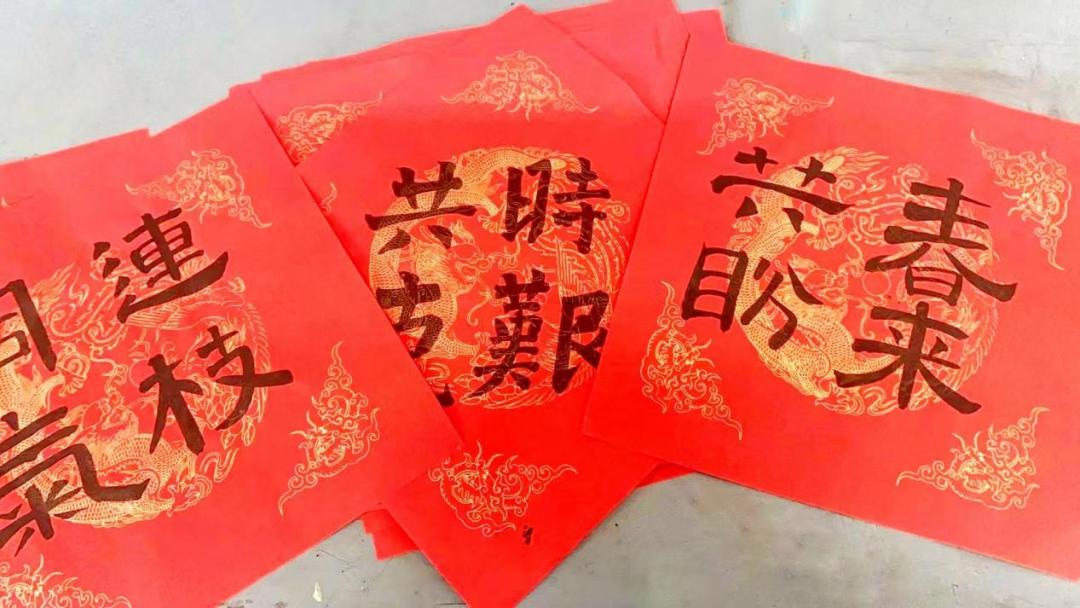 同氣
連枝
共克
時艱
共盼
春来